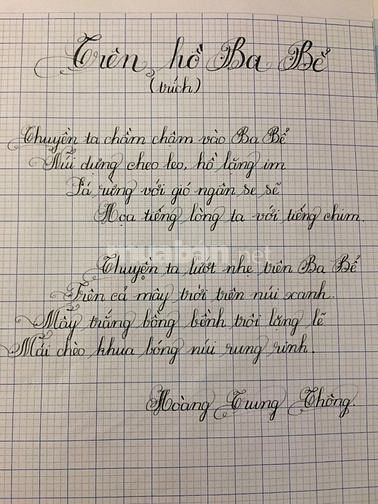 Trên hồ Ba Bể
(trích)
Thuyền ta chầm chậm vào Ba Bể
Núi dựng cheo leo, hồ lặng im
Lá rừng với gió ngân se sẽ
Họa tiếng lòng ta với tiếng chim.
Thuyền ta lướt nhẹ trên Ba Bể
Trên cả mây trời trên núi xanh.
Mây trắng bồng bềnh trôi lặng lẽ
Mái chèo khua bóng núi rung rinh.
Hoàng Trung Thông.